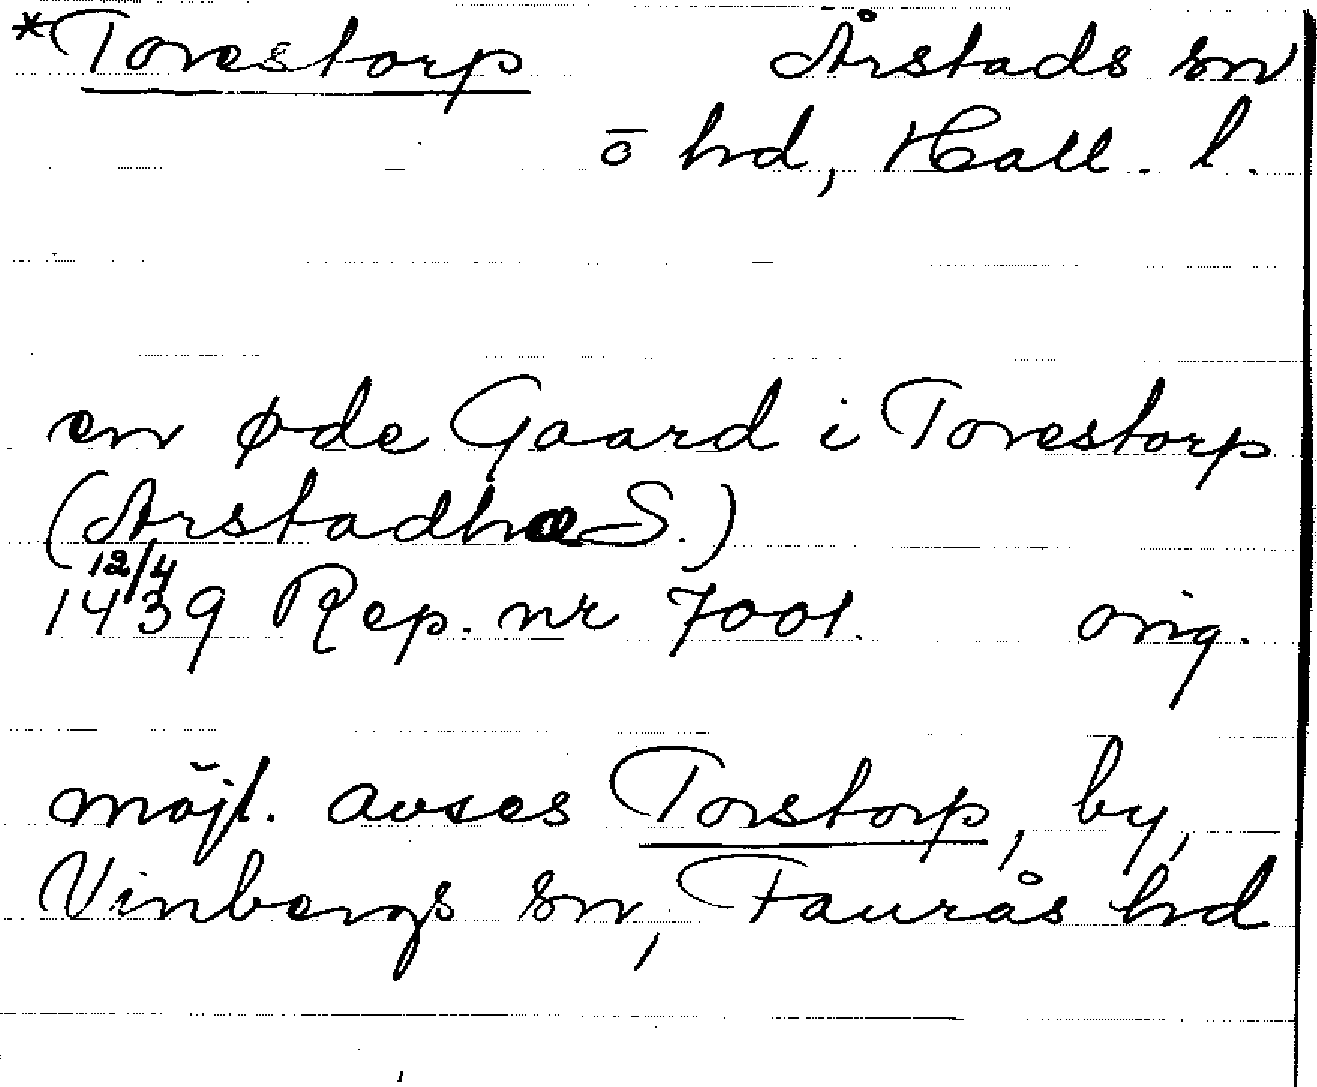 *Torestorp Årstads sn
o hd, Hall. l.
en øde Gaard i Torestorp
(ArstadhæS.)
12/4
1439 Rep. nr 7001. orig.
möjl. avses Torstorp, by,
Vinbergs sn, Faurås hd